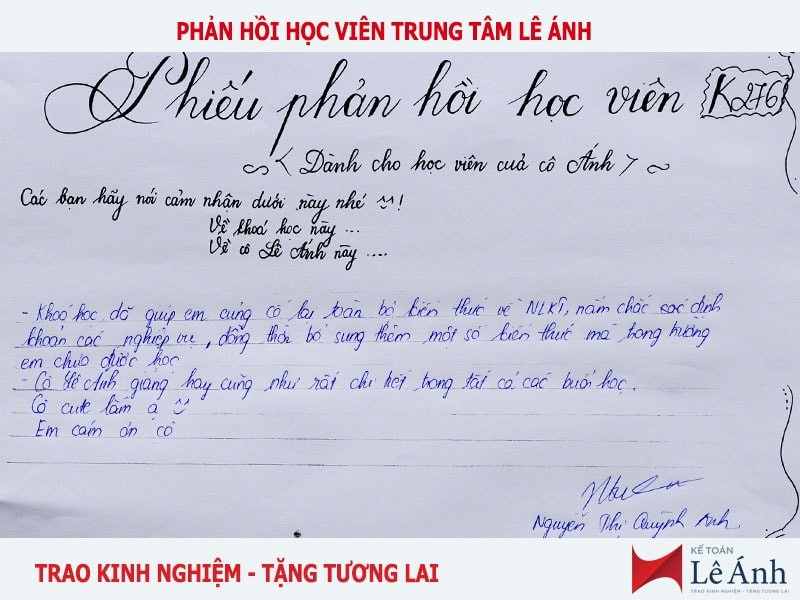 PHẢN HỒI HỌC VIÊN TRUNG TÂM LÊ ÁNH
Phiếu phản hồi học viên K276
< Dành cho học viên cuả cô Ánh >
Các bạn hãy nói cảm nhận dưới này nhé !
Về khoá học này ...
Về cô Lê Ánh này ....
- Khoá học đã giúp em củng cố lại toàn bộ kiến thức về NLKT, nắm chắc các định
khoản các nghiệp vụ, đồng thời bổ sung thêm một số kiến thức mà trong trường
em chưa được học
- Cô Lê Ánh giảng hay cũng như rất chi tiết trong tất cả các buổi học.
Cô cute lắm ạ
Em cám ơn cô
Nguyễn Thị Quỳnh Anh
TRAO KINH NGHIỆM - TẶNG TƯƠNG LAI
KẾ TOÁN
Lê Ánh
TRAO KINH NGHIỆM - TẶNG TƯƠNG LAI